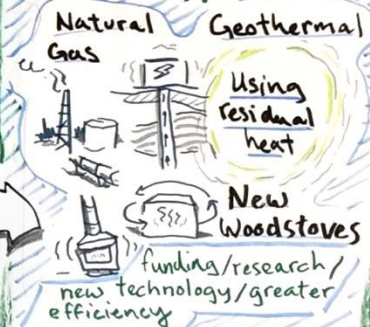 Natural
Gas
Geothermal
Using
residual
heat
New
Woodstoves
funding/research/
new technology/greater
efficiency